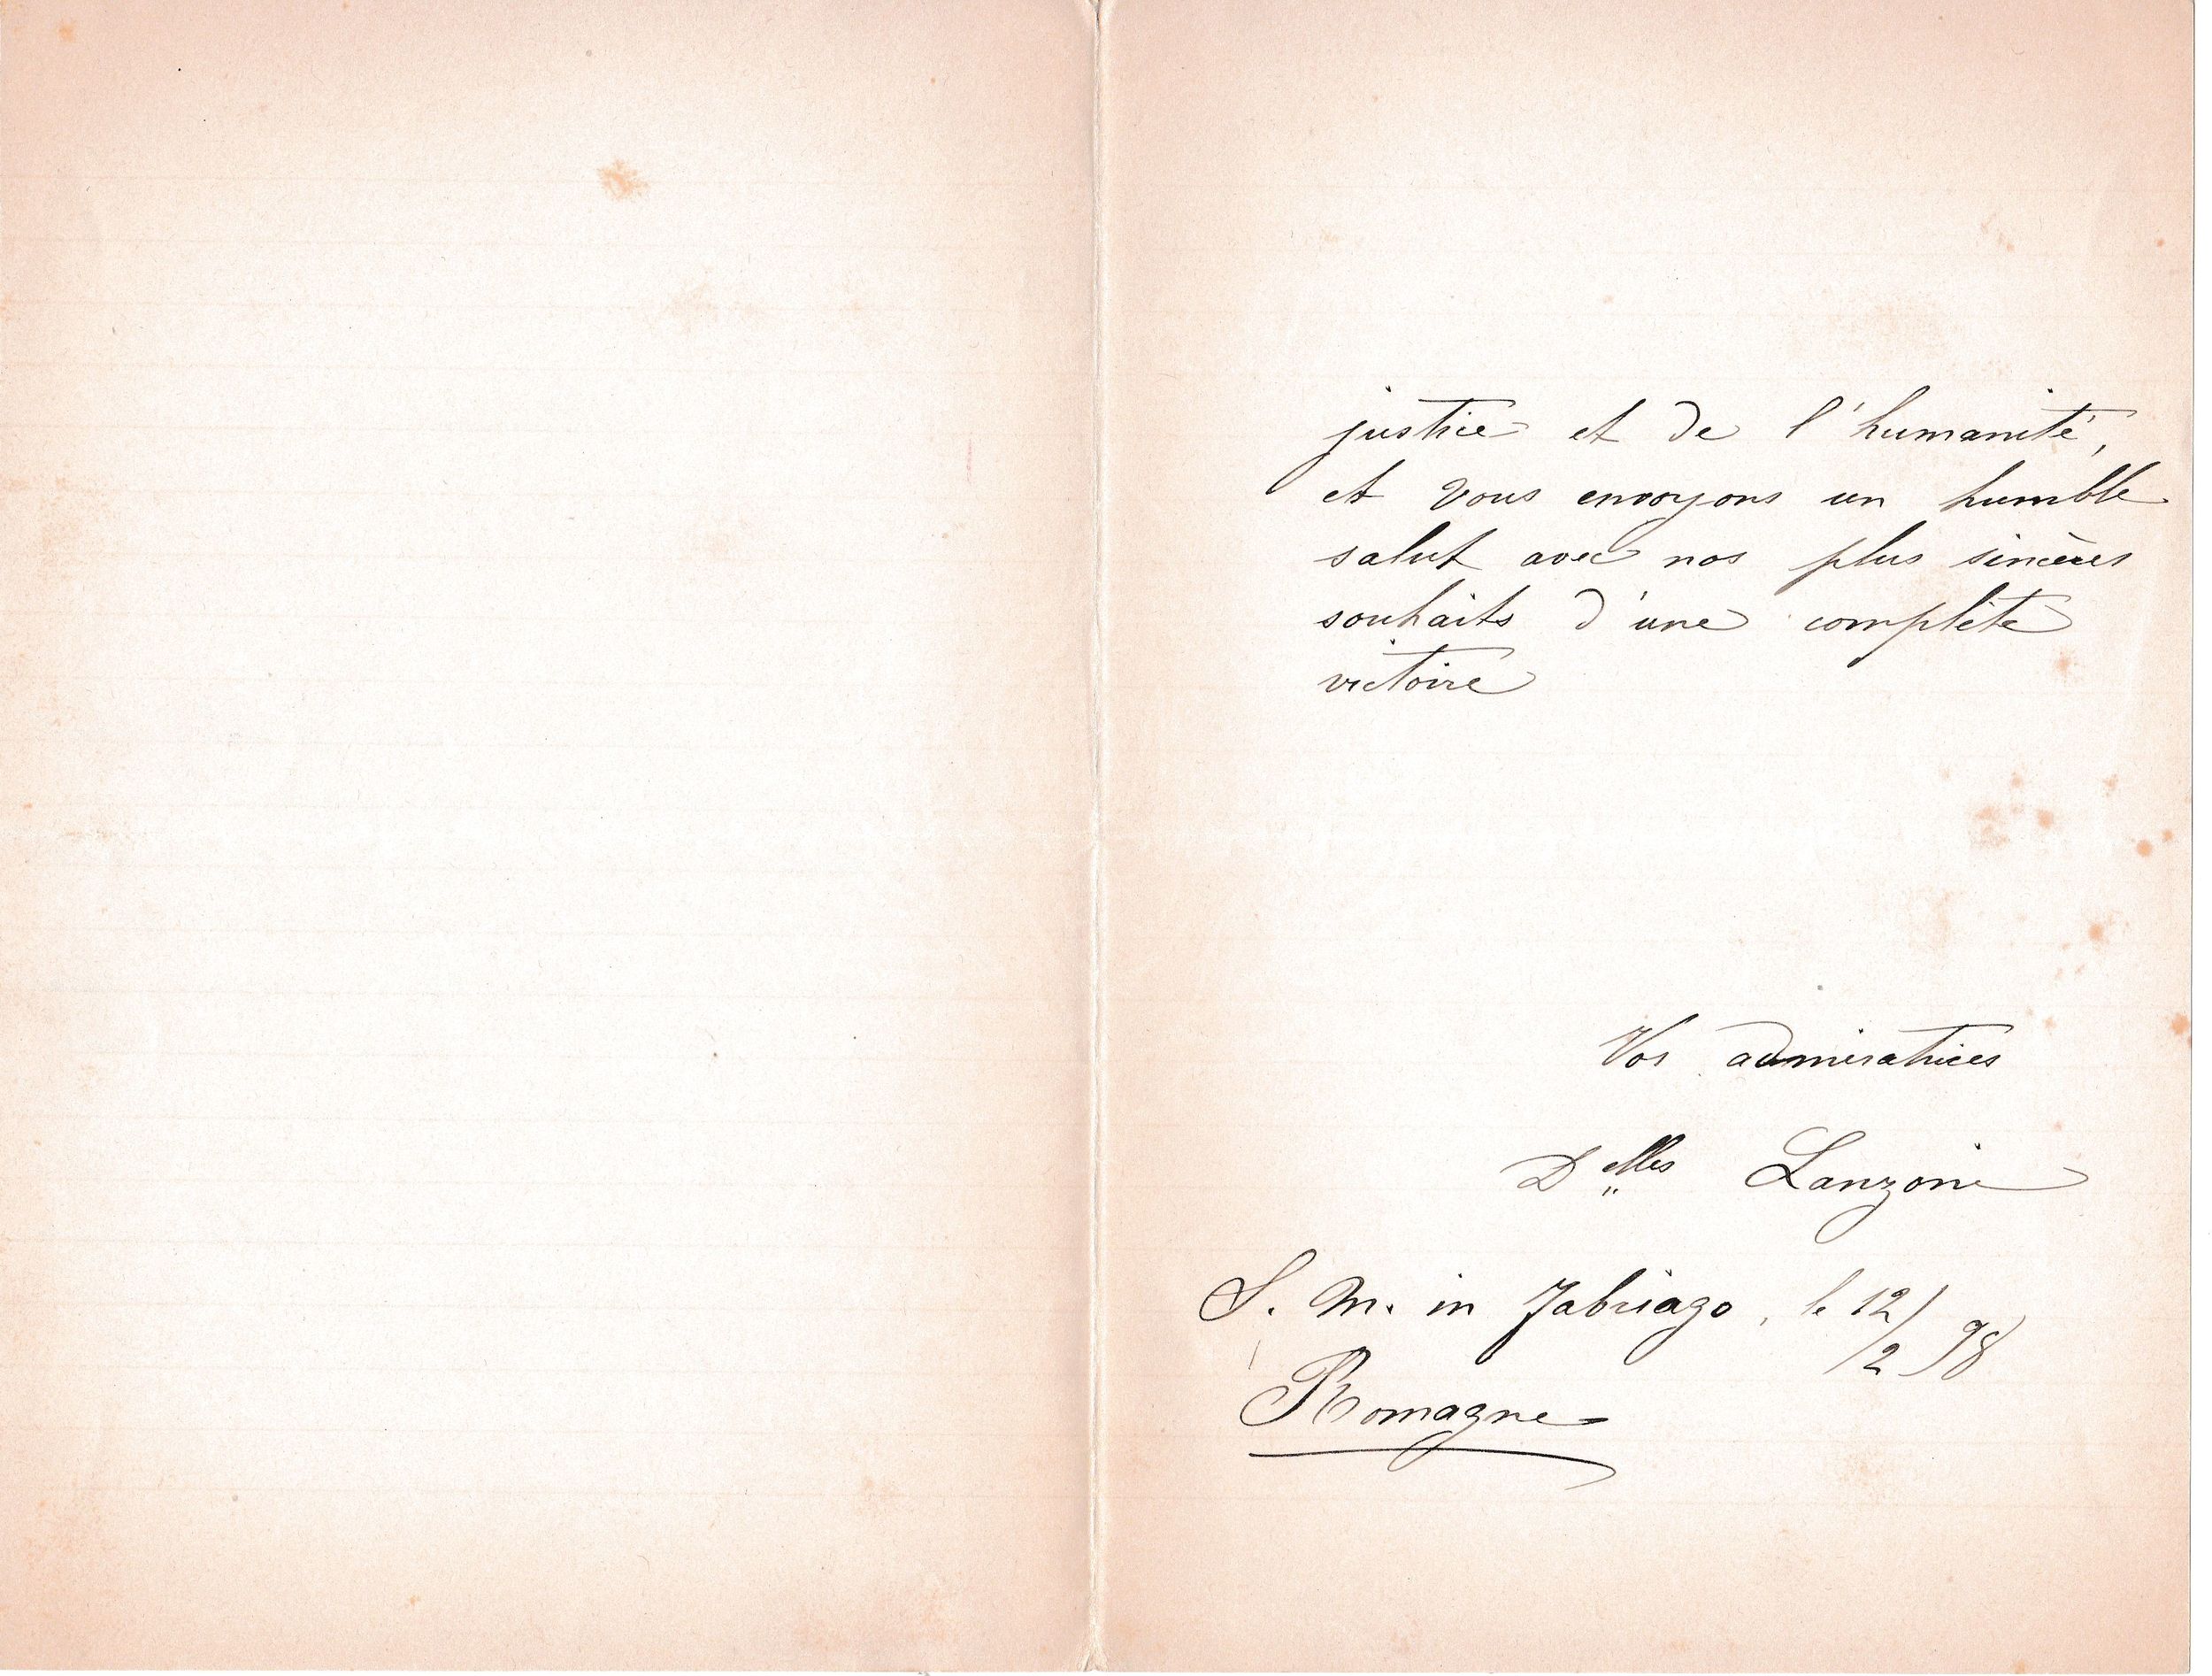 justice et de l'humanité,
et Vous envoyons un humble
salut avec nos plus sincères
souhaits d'une complète
victoire
Vos admiratrices
Delles Lanzoni
S. M. in Fabriago, le 12/2 98
Romagne